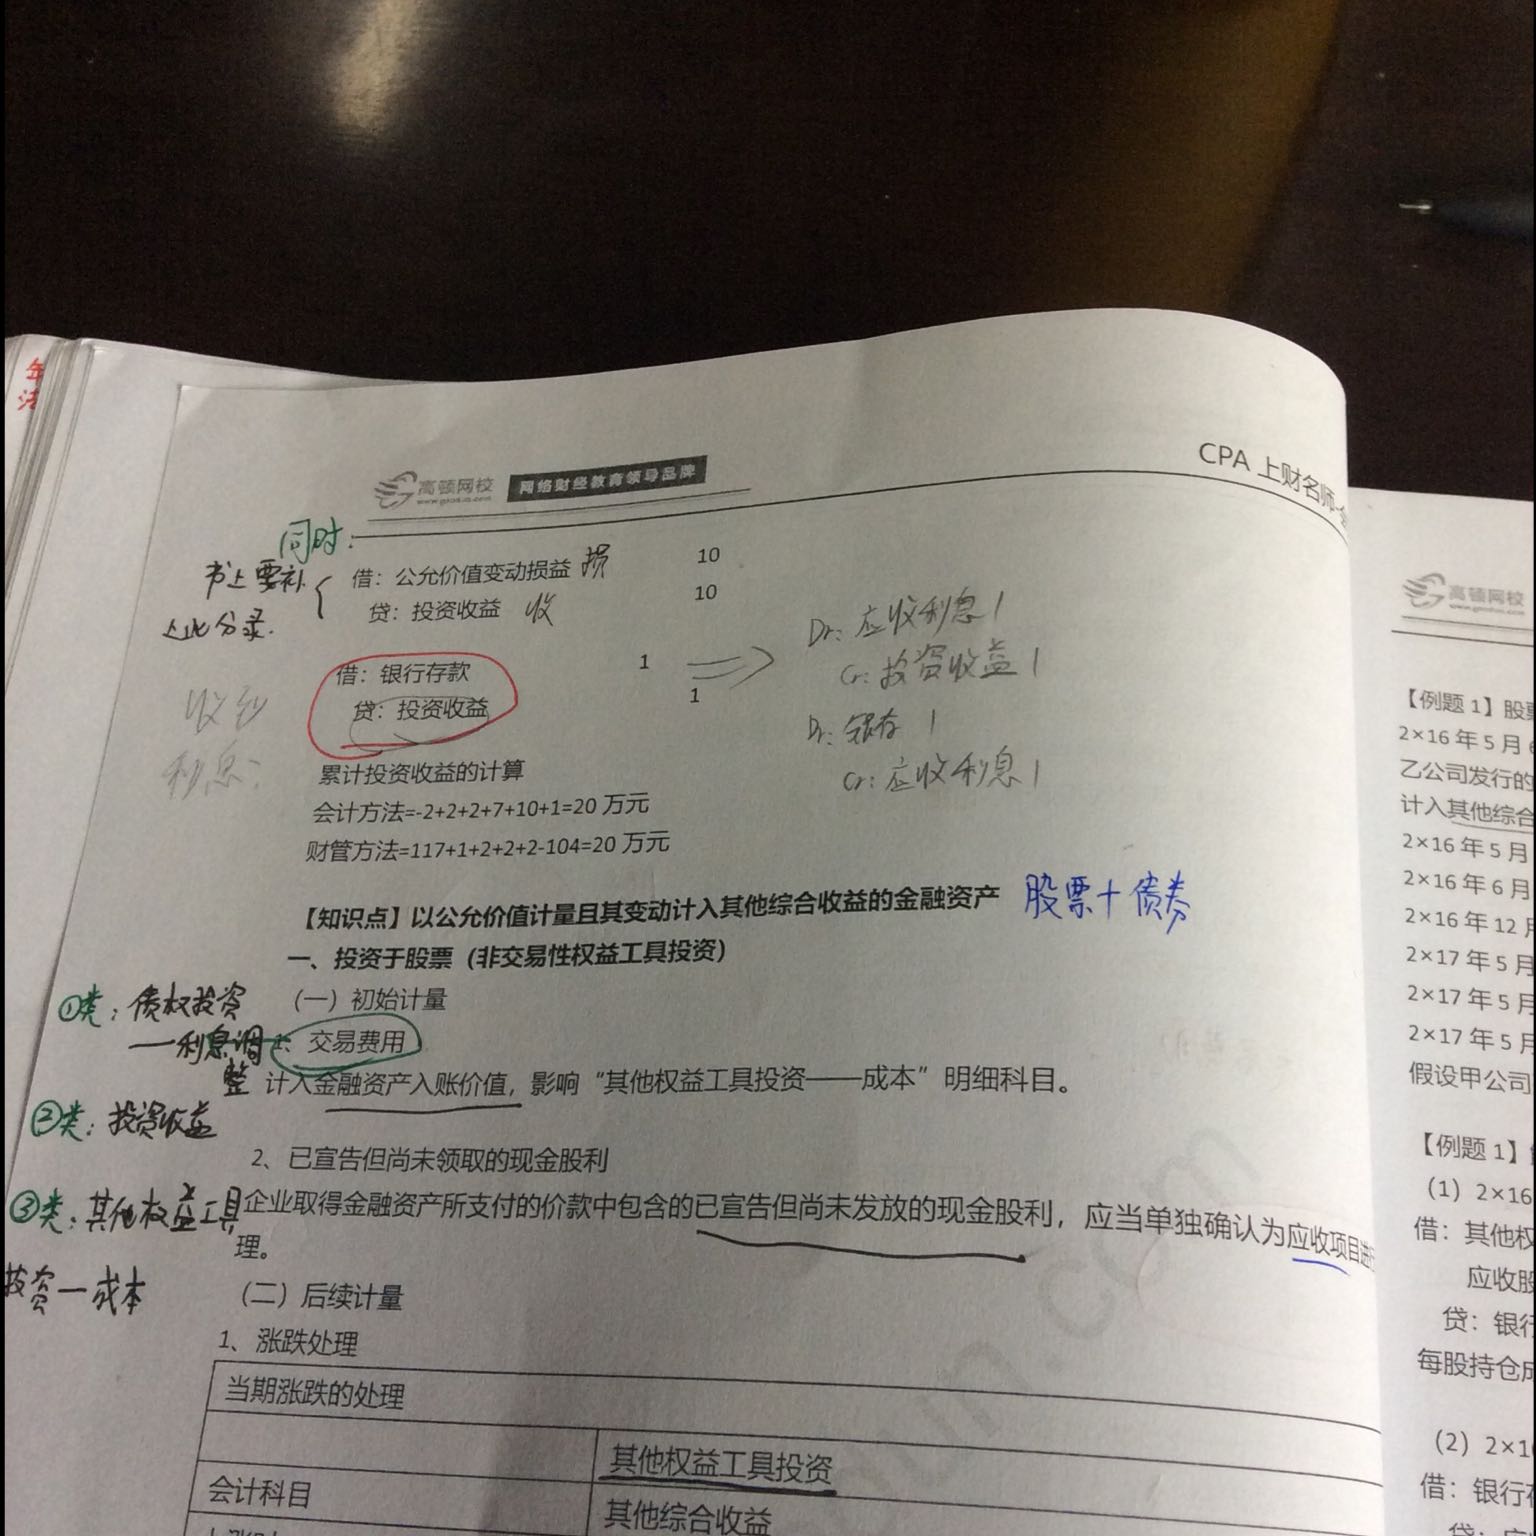 年
高顿网校 网络财经教育领导品牌
CPA 上财名师
同时:
书上要补
上此分录.
借：公允价值变动损益 损 10
贷：投资收益 收 10
收到
利息:
借：银行存款 1
贷：投资收益 1
Dr: 应收利息 1
Cr: 投资收益 1
Dr: 银存 1
Cr: 应收利息 1
累计投资收益的计算
会计方法=-2+2+2+7+10+1=20 万元
财管方法=117+1+2+2+2-104=20 万元
【知识点】以公允价值计量且其变动计入其他综合收益的金融资产 股票+债券
一、投资于股票（非交易性权益工具投资）
（一）初始计量
①类: 债权投资
—利息调
整
1、交易费用
计入金融资产入账价值，影响“其他权益工具投资——成本”明细科目。
②类: 投资收益
2、已宣告但尚未领取的现金股利
③类: 其他权益工具
投资—成本
企业取得金融资产所支付的价款中包含的已宣告但尚未发放的现金股利，应当单独确认为应收项目进行
理。
（二）后续计量
1、涨跌处理
当期涨跌的处理
其他权益工具投资
会计科目
其他综合收益
高顿网校
【例题 1】股票
2×16 年 5 月 6
乙公司发行的
计入其他综合
2×16 年 5 月
2×16 年 6 月
2×16 年 12 月
2×17 年 5 月
2×17 年 5 月
2×17 年 5 月
假设甲公司
【例题 1】
（1）2×16
借：其他权
应收股
贷：银行
每股持仓成
（2）2×1
借：银行存
贷：